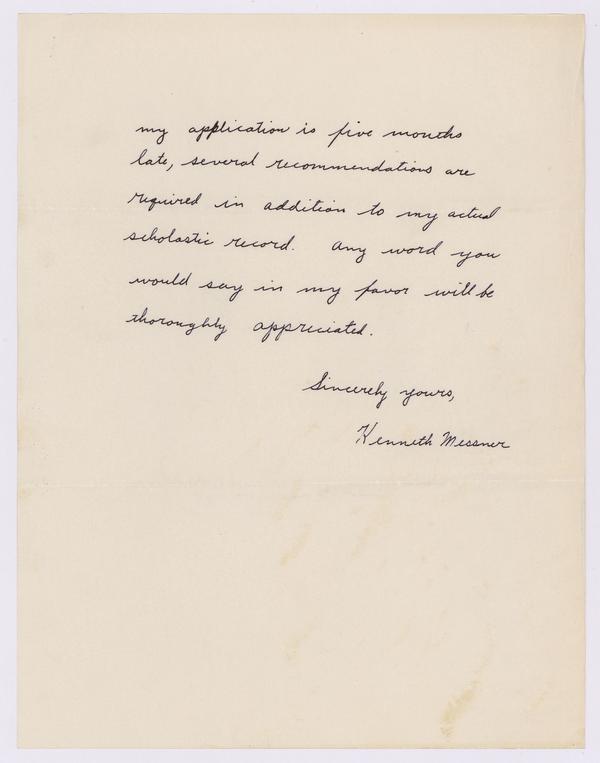 my application is five months
late, several recommendations are
required in addition to my actual
scholastic record. Any word you
would say in my favor will be
thoroughly appreciated.
Sincerely yours,
Kenneth Messner